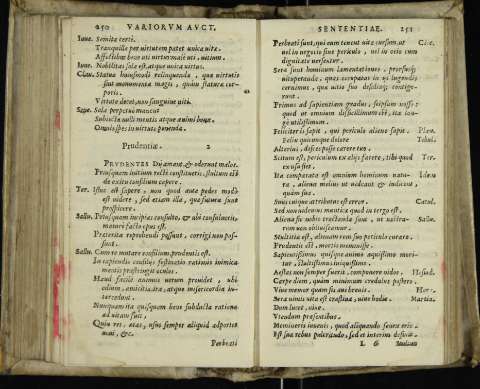 250 VARIORVM AVCT.
Iuue. Semita certi.
Tranquillæ per virtutem patet unica vitæ.
Affectibus bene uti
Iuue. Nobilitas sola est, atque unica virtus.
Clau. Statua huiusmodi relinquenda, quæ virtutis
sint monumenta magis, quàm staturæ cor-
poris.
Virtute decet, non sanguine niti.
Sene. Sola perpetuò manent
Subiecta nulli mentis atque animi bona.
Omnis spes in virtute ponenda.
Prudentia. 2
PRVDENTES Dij amant, & oderunt malos.
Priusquam initium recti constitueris, stultum est
de exitu consilium capere.
Ter. Istuc est sapere, non quod ante pedes modò
est videre, sed etiam illa, quæ futura sunt
prospicere.
Sallu. Priusquam incipias consulto, & ubi consulueris,
maturè facto opus est.
Præterita reprehendi possunt, corrigi non pos-
sunt.
Sallu. Cum re mutare consilium prudentis est.
In capiendis consilijs festinatio rationis inimica
mentis præstringit oculos.
Haud facile animus verum prouidet, ubi
odium, amicitia, ira, atque misericordia in-
tercedunt.
Nunquam ita quisquam bene subducta ratione
ad vitam fuit,
Quin res, ætas, usus semper aliquid adportet
noui, &c.
Perbeati
SENTENTIAE. 251
Perbeati sunt, qui eum tenent vitæ cursum, ut Cic.
vel in negocio sine periculo, vel in ocio cum
dignitate versentur.
Sera sunt hominum lamentationes, prorsusq́;
vituperandæ, quas comparas in ijs lugendis
cernimus, quæ vitio suo desidiosis contige-
runt.
Primus ad sapientiam gradus, seipsum nosse:
quod ut omnium difficillimum est, ita lon-
gè utilissimum.
Feliciter is sapit, qui periculo alieno sapit. Plau.
Felix quicunque dolore Tibul.
Alterius, disces posse carere tuo.
Scitum est, periculum ex alijs facere, tibi quod Ter.
ex usu siet.
Ita comparata est omnium hominum natu- Idem
ra, aliena melius ut videant & iudicent,
quàm sua.
Suus cuique attributus est error. Catul.
Sed non videmus manticæ quod in tergo est.
Aliena sic nobis tractanda sunt, ut nostra- Sallu.
rum non obliuiscamur.
Stultitia est, alienam rem suo periculo curare.
Prudentis est, mortis meminisse.
Sapientissimus quisque animo æquissimo mori-
tur, stultissimus iniquissimo.
Aestas non semper fuerit, componite nidos. Hesiod.
Carpe diem, quàm minimum credulus postero.
Viue memor quàm sis æui breuis. Hor.
Sera nimis vita est crastina, viue hodie. Martia.
Dum licet, viue.
Vtendum præsentibus.
Memineris iuuenis, quod aliquando senex eris.
Est sua rebus pulcritudo, sed et interim
L 6